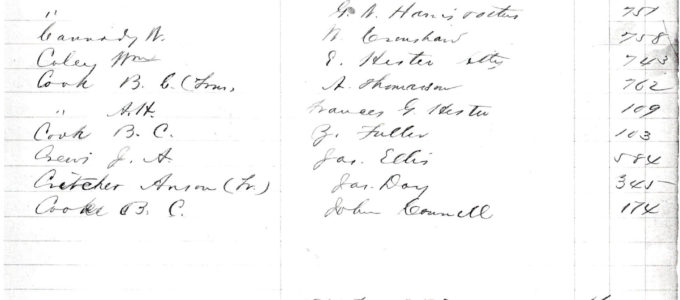 " G. W. Harris 751
Cannady W. W Crenshaw 758
Coley Wm E. Hester 743
Cook B. C. (Trus, A. Thomason 762
" A. H. Frances G. Hester 109
Cook B. C. Z. Fuller 103
Crews J. A Jas. Ellis 584
Critcher Anson (Tr.) Jas. Day 345
Cook B. C. John Connell 174